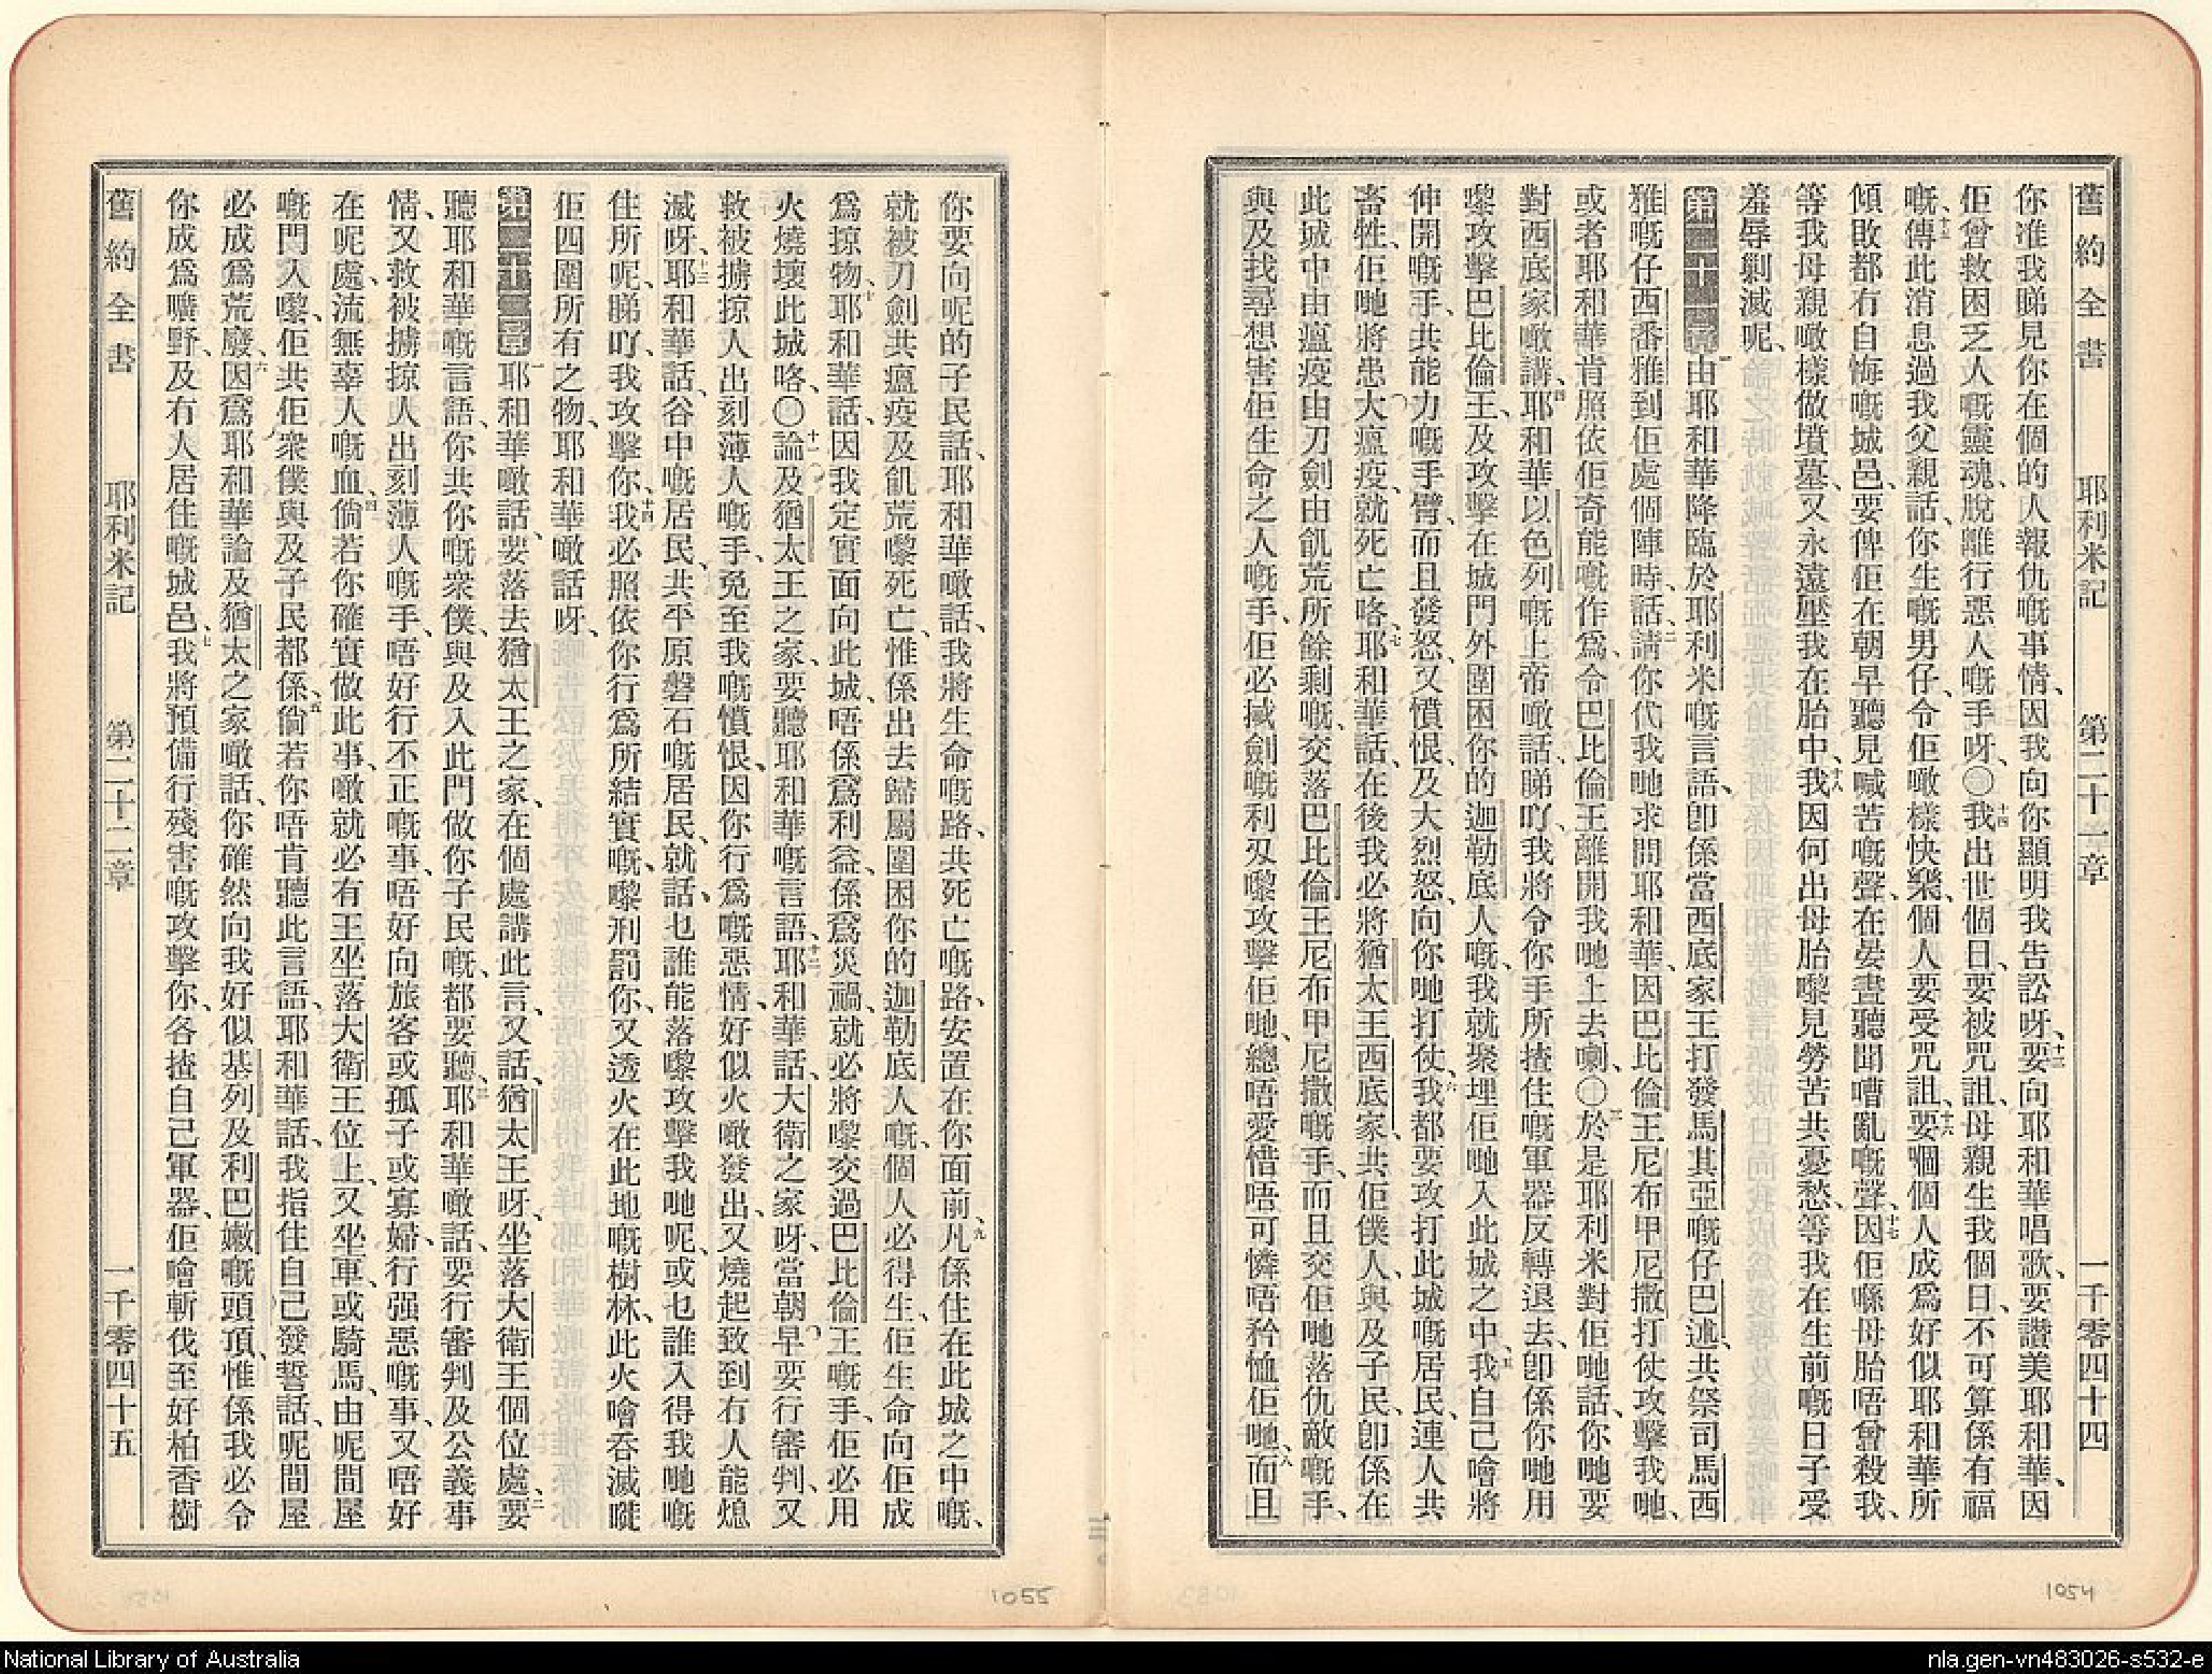 舊約全書 耶利米記 第二十一章 一千零四十四
你准我睇見你在個的人報仇嘅事情、因我向你顯明我告訟呀、十三要向耶和華唱歌、要讚美耶和華、因
佢曾救困乏人嘅靈魂、脫離行惡人嘅手呀、〇十四我出世個日、要被咒詛、母親生我個日、不可算係有福
嘅、十五傳此消息過我父親話、你生嘅男仔、令佢噉樣快樂、個人要受咒詛、十六要嗰個人成爲好似耶和華所
傾敗都冇自悔嘅城邑、要俾佢在朝早聽見喊苦嘅聲、在晏晝聽聞嘈亂嘅聲、十七因佢喺母胎唔曾殺我、
等我母親噉樣做墳墓、又永遠壓我在胎中、十八我因何出母胎嚟見勞苦共憂愁、等我在生前嘅日子受
羞辱剿滅呢、
第二十一章 一由耶和華降臨於耶利米嘅言語、卽係當西底家王打發馬其亞嘅仔巴述、共祭司馬西
雅嘅仔西番雅到佢處個陣時、話、二請你代我哋求問耶和華、因巴比倫王尼布甲尼撒打仗攻擊我哋、
或者耶和華肯照依佢奇能嘅作爲、令巴比倫王離開我哋上去喇、〇三於是耶利米對佢哋話、你哋要
對西底家噉講、四耶和華以色列嘅上帝噉話、睇吖、我將令你手所揸住嘅軍器反轉退去、卽係你哋用
嚟攻擊巴比倫王、及攻擊在城門外圍困你的迦勒底人嘅、我就聚埋佢哋入此城之中、五我自己噲將
伸開嘅手、共能力嘅手臂、而且發怒、又憤恨、及大烈怒、向你哋打仗、六我都要攻打此城嘅居民、連人共
畜牲、佢哋將患大瘟疫、就死亡咯、七耶和華話、在後我必將猶太王西底家、共佢僕人、與及子民、卽係在
此城中由瘟疫由刀劍由飢荒所餘剩嘅、交落巴比倫王尼布甲尼撒嘅手、而且交佢哋落仇敵嘅手、
與及找尋想害佢生命之人嘅手、佢必揻劍嘅利刄嚟攻擊佢哋、總唔愛惜唔可憐唔矜恤佢哋、八而且
1054
你要向呢的子民話、耶和華噉話、我將生命嘅路、共死亡嘅路、安置在你面前、九凡係住在此城之中嘅、
就被刀劍共瘟疫及飢荒嚟死亡、惟係出去歸屬圍困你的迦勒底人嘅、個人必得生、佢生命向佢成
爲掠物、十耶和華話、因我定實面向此城、唔係爲利益、係爲災禍、就必將嚟交過巴比倫王嘅手、佢必用
火燒壞此城咯、〇十一論及猶太王之家、要聽耶和華嘅言語、十二耶和華話、大衛之家呀、當朝早要行審判、又
救被擄掠人出刻薄人嘅手、免至我嘅憤恨、因你行爲嘅惡情、好似火噉發出、又燒起致到冇人能熄
滅呀、十三耶和華話、谷中嘅居民、共平原磐石嘅居民、就話、乜誰能落嚟攻擊我哋呢、或乜誰入得我哋嘅
住所呢、睇吖、我攻擊你、十四我必照依你行爲所結實嘅、嚟刑罰你、又透火在此地嘅樹林、此火噲吞滅嘥
佢四圍所有之物、耶和華噉話呀、
第二十二章 一耶和華噉話、要落去猶太王之家、在個處講此言、又話、猶太王呀、坐落大衛王個位處、二要
聽耶和華嘅言語、你共你嘅衆僕、與及入此門做你子民嘅、都要聽、三耶和華噉話、要行審判及公義事
情、又救被擄掠人出刻薄人嘅手、唔好行不正嘅事、唔好向旅客或孤子或寡婦、行强惡嘅事、又唔好
在呢處、流無辜人嘅血、四倘若你確實做此事、噉就必有王坐落大衛王位上、又坐車、或騎馬、由呢間屋
嘅門入嚟、佢共佢衆僕與及子民都係、五倘若你唔肯聽此言語、耶和華話、我指住自己發誓話、呢間屋
必成爲荒廢、六因爲耶和華論及猶太之家噉話、你確然向我好似基列及利巴嫩嘅頭頂、惟係我必令
你成爲曠野、及冇人居住嘅城邑、七我將預備行殘害嘅攻擊你、各揸自己軍器、佢噲斬伐至好柏香樹
舊約全書 耶利米記 第二十二章 一千零四十五
1055
National Library of Australia
nla.gen-vn483026-s532-e